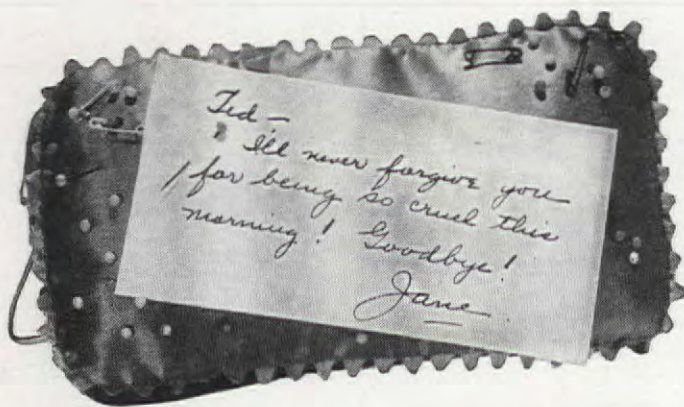 Ted —
I'll never forgive you
for being so cruel this
morning! Goodbye!
Jane